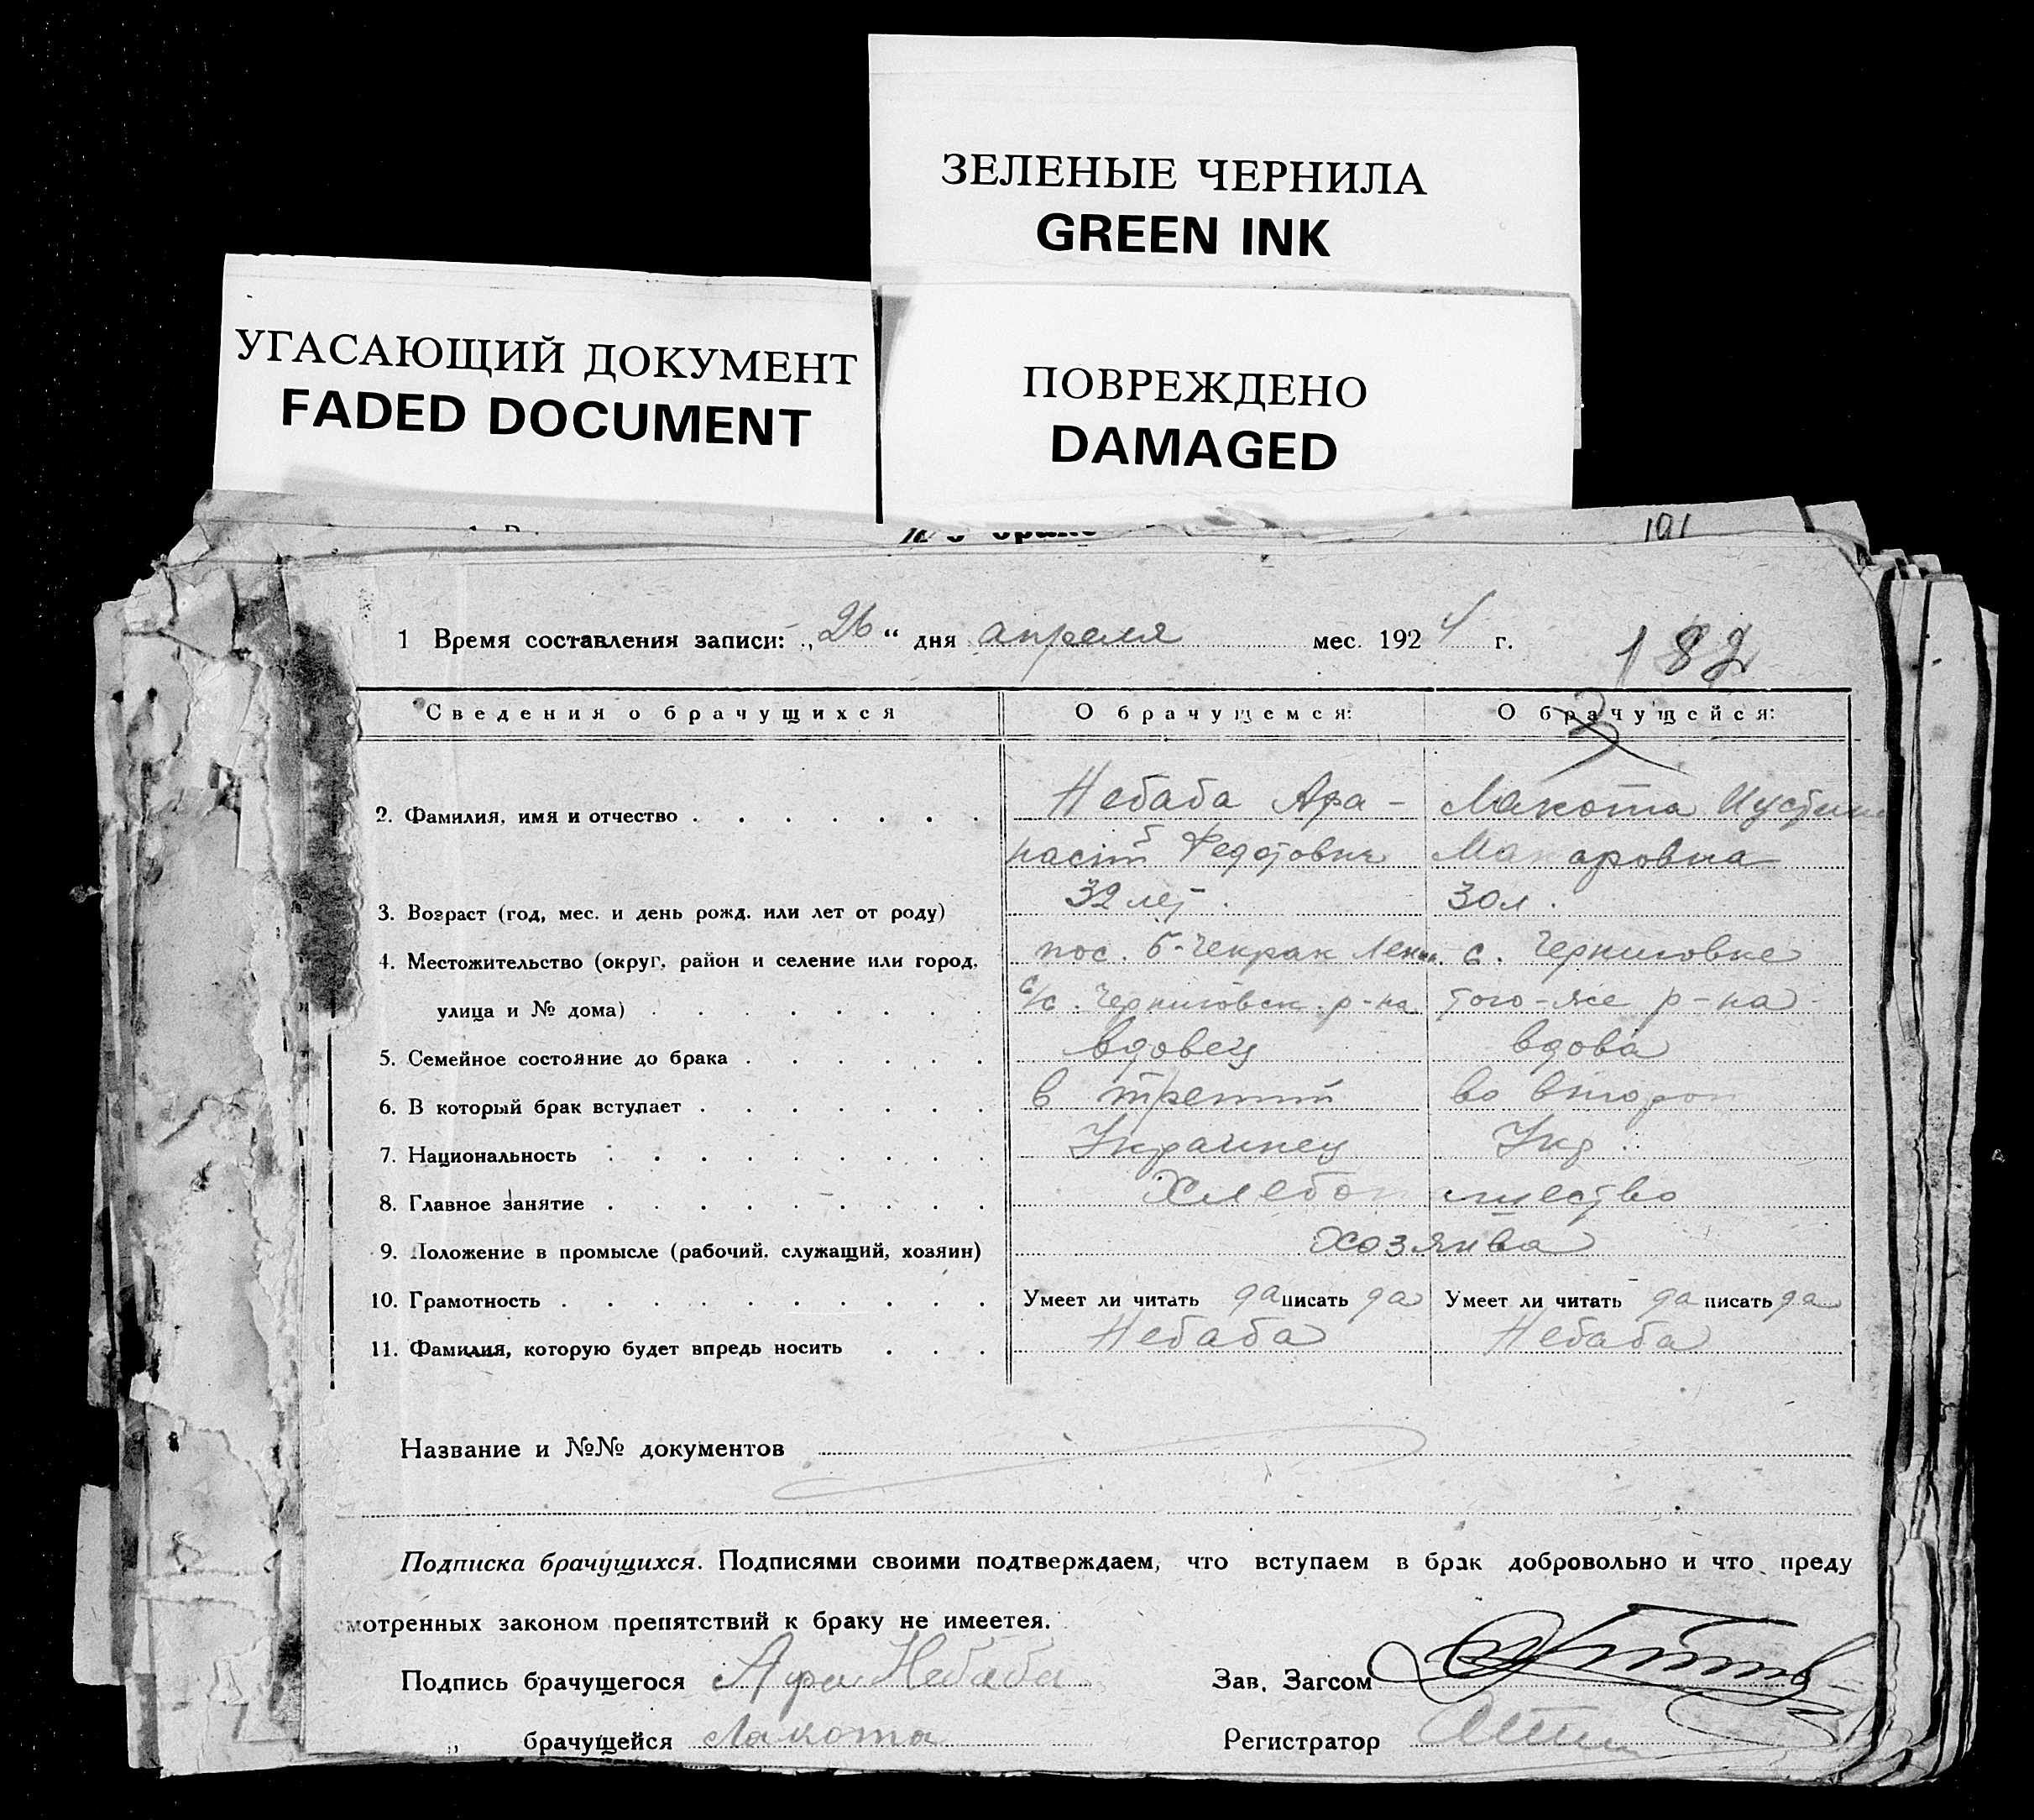 ЗЕЛЕНЫЕ ЧЕРНИЛА
GREEN INK
УГАСАЮЩИЙ ДОКУМЕНТ
FADED DOCUMENT
ПОВРЕЖДЕНО
DAMAGED
191
1 Время составления записи: „26“ дня апреля мес. 1924 г.
182
Сведения о брачущихся О брачущемся: О брачущейся:
2. Фамилия, имя и отчество Небаба Афа- Лакота Иустина
насий Федотович Макаровна
3. Возраст (год, мес. и день рожд. или лет от роду) 32 лет. 30 л.
4. Местожительство (округ, район и селение или город, пос. Б-Чекрак Ленин. с. Черниговке
улица и № дома) с/с. Черниговск. р-на того-же р-на
5. Семейное состояние до брака вдовец вдова
6. В который брак вступает в третий во второй
7. Национальность Украинец Укр.
8. Главное занятие Хлебопашество
9. Положение в промысле (рабочий, служащий, хозяин) хозяйва
10. Грамотность Умеет ли читать да писать да Умеет ли читать да писать да
11. Фамилия, которую будет впредь носить Небаба Небаба
Название и №№ документов
Подписка брачущихся. Подписями своими подтверждаем, что вступаем в брак добровольно и что преду
смотренных законом препятствий к браку не имеетея.
Подпись брачущегося Афа Небаба Зав. Загсом
„ брачущейся Лакота Регистратор